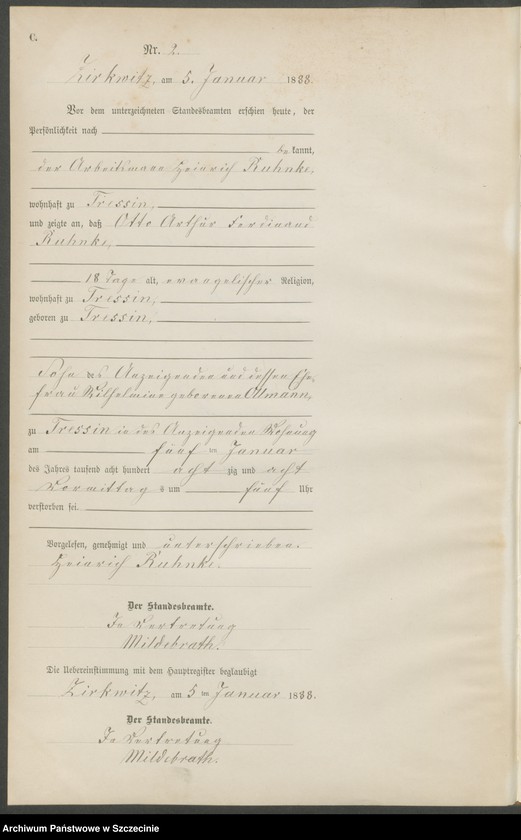 C.
Nr. 2.
Zirkwitz, am 5. Januar 1888.
Vor dem unterzeichneten Standesbeamten erschien heute, der
Persönlichkeit nach
be kannt,
der Arbeitsmann Heinrich Ruhnke,
wohnhaft zu Tressin,
und zeigte an, daß Otto Arthur Ferdinand
Ruhnke,
18 Tage alt, evangelischer Religion,
wohnhaft zu Tressin,
geboren zu Tressin,
Sohn des Anzeigenden und dessen Ehe-
frau Wilhelmine geborenen Ottmann,
zu Tressin in des Anzeigenden Wohnung
am fünf ten Januar
des Jahres tausend acht hundert acht zig und acht
Vormittag s um fünf Uhr
verstorben sei.
Vorgelesen, genehmigt und unterschrieben.
Heinrich Ruhnke.
Der Standesbeamte.
In Vertretung
Mildebrath.
Die Uebereinstimmung mit dem Hauptregister beglaubigt
Zirkwitz, am 5 ten Januar 1888.
Der Standesbeamte.
In Vertretung
Mildebrath.
Archiwum Państwowe w Szczecinie